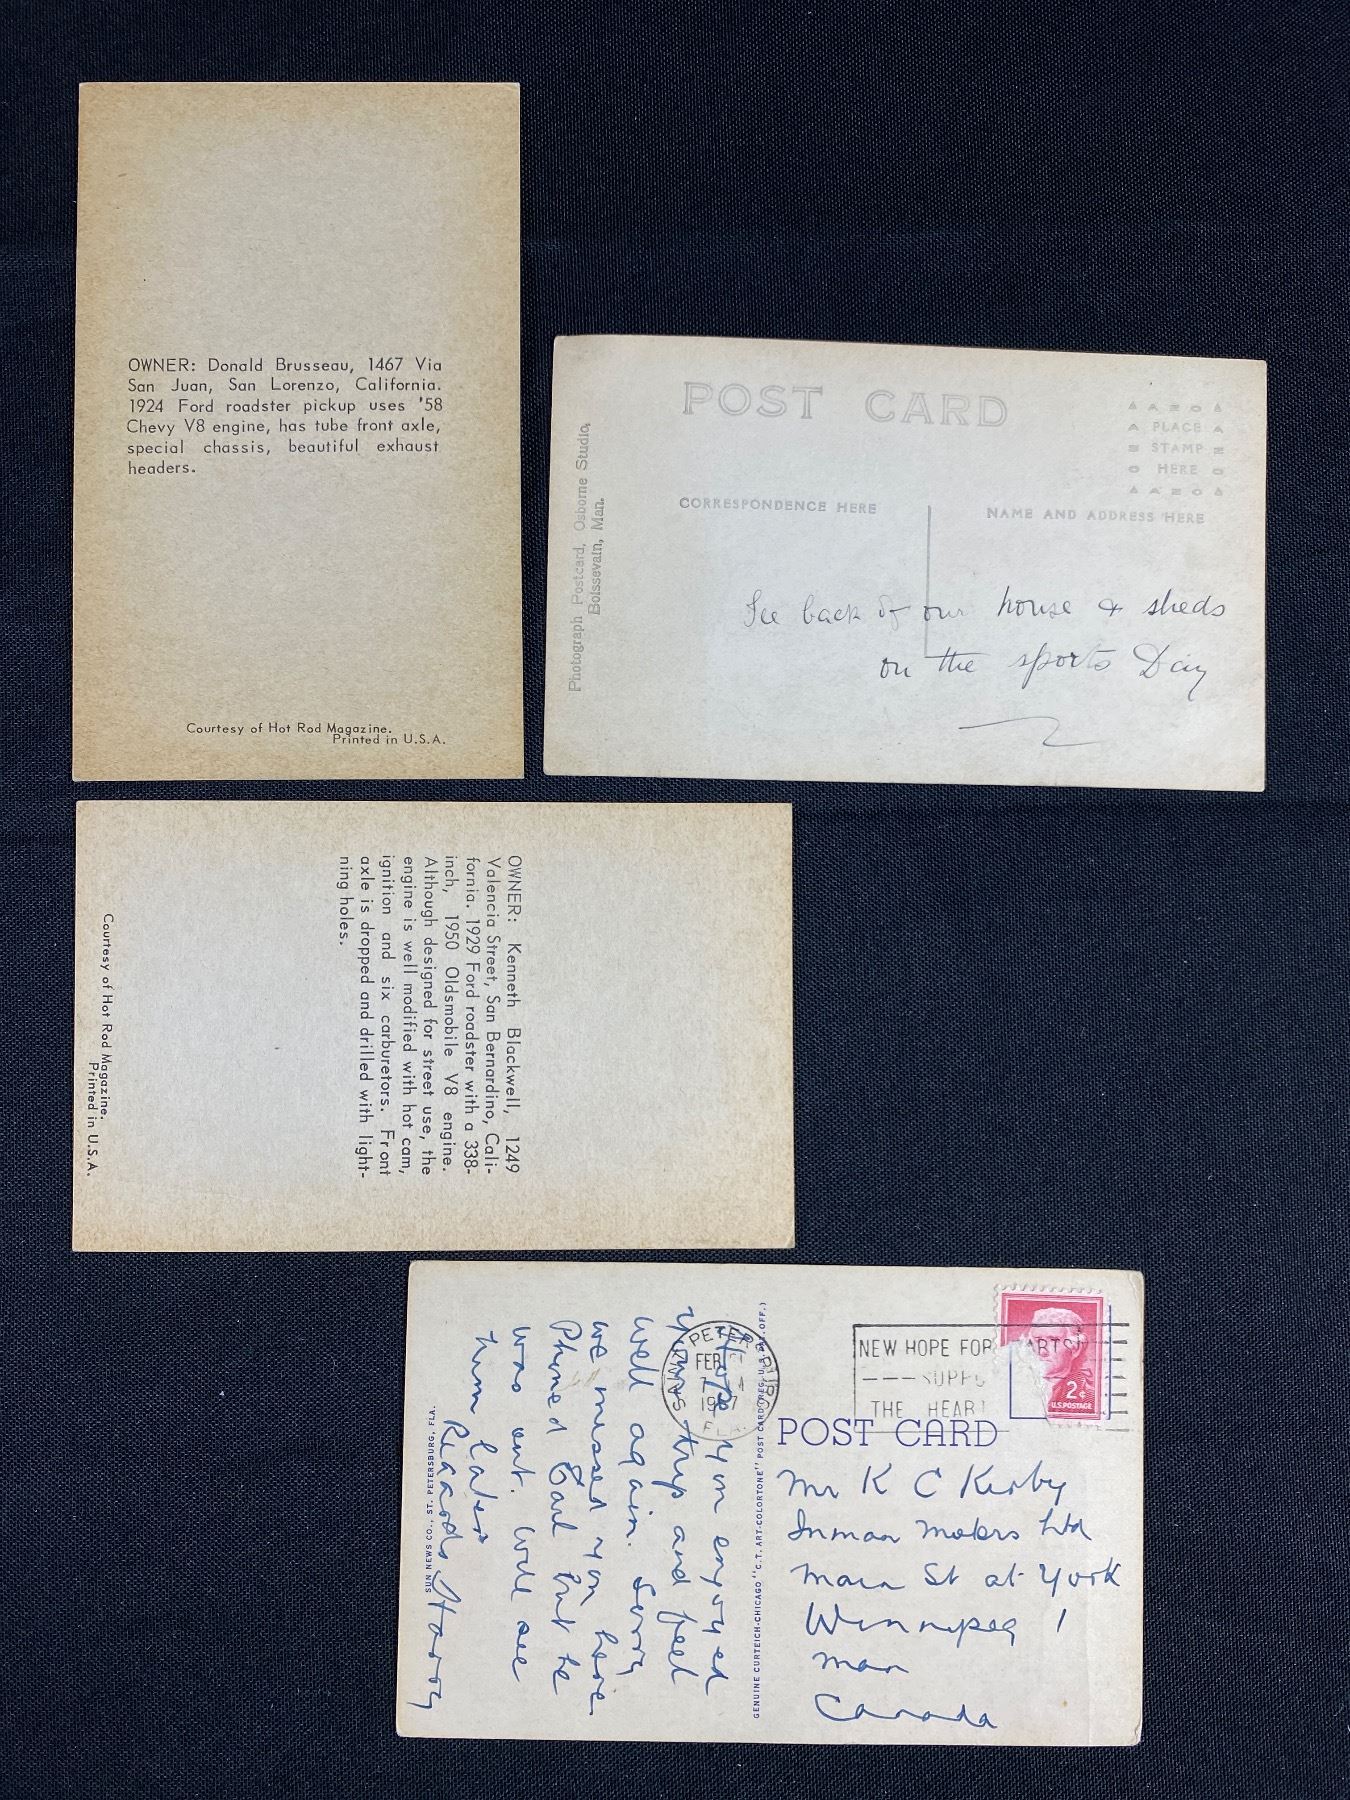 OWNER: Donald Brusseau, 1467 Via
San Juan, San Lorenzo, California.
1924 Ford roadster pickup uses '58
Chevy V8 engine, has tube front axle,
special chassis, beautiful exhaust
headers.
Courtesy of Hot Rod Magazine.
Printed in U.S.A.
POST CARD
PLACE
STAMP
HERE
CORRESPONDENCE HERE
NAME AND ADDRESS HERE
Photograph Postcard, Osborne Studio,
Boissevain, Man.
back of our house & sheds
on the sports Day
OWNER: Kenneth Blackwell, 1249
Valencia Street, San Bernardino, Cali-
fornia. 1929 Ford roadster with a 338-
inch, 1950 Oldsmobile V8 engine.
Although designed for street use, the
engine is well modified with hot cam,
ignition and six carburetors. Front
axle is dropped and drilled with light-
ning holes.
Courtesy of Hot Rod Magazine.
Printed in U.S.A.
Hope you enjoyed
your trip and feel
well again. Sorry
we missed you here
Phoned Earl but he
was out. Will see
him later
Regards Harry
SUN NEWS CO., ST. PETERSBURG, FLA.
GENUINE CURTEICH-CHICAGO "C.T. ART-COLORTONE" POST CARD (REG. U.S. PAT. OFF.)
SAINT PETERSBURG
FEB
FLA.
NEW HOPE FOR HEARTS
THE HEART
2¢
U.S. POSTAGE
POST CARD
Mr K C Kirby
Inman Motors Ltd
Main St at York
Winnipeg 1
Man
Canada